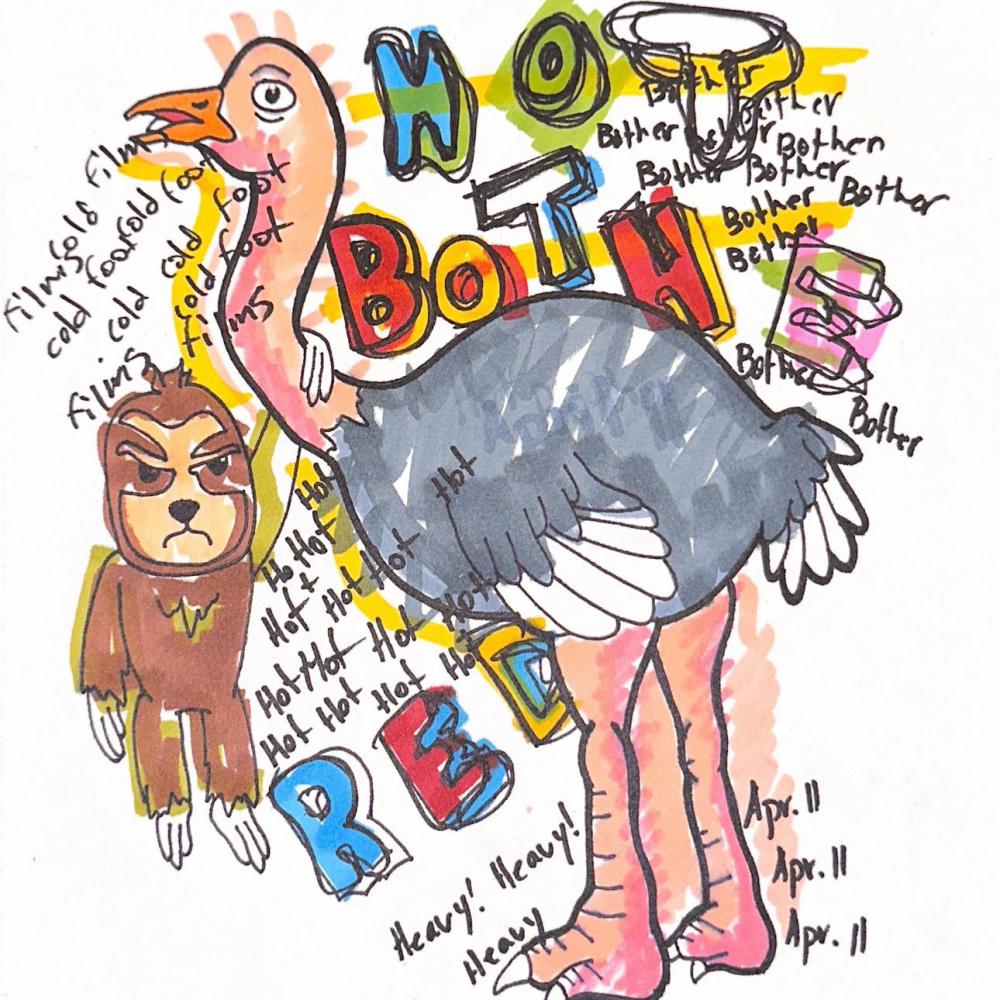 HOT
Bother
Bother
Bother Bother Bothen
Bother Bother Bother
BOTHE
Bother
Bother
Bother
Bother
film
films cold
cold foot cold foot
cold foot
cold foot
films
films
Hot
Hot Hot
Hot Hot Hot
Hot Hot Hot Hot
Hot Hot Hot Hot Hot
RED
Heavy! Heavy!
Heavy
Apr. 11
Apr. 11
Apr. 11